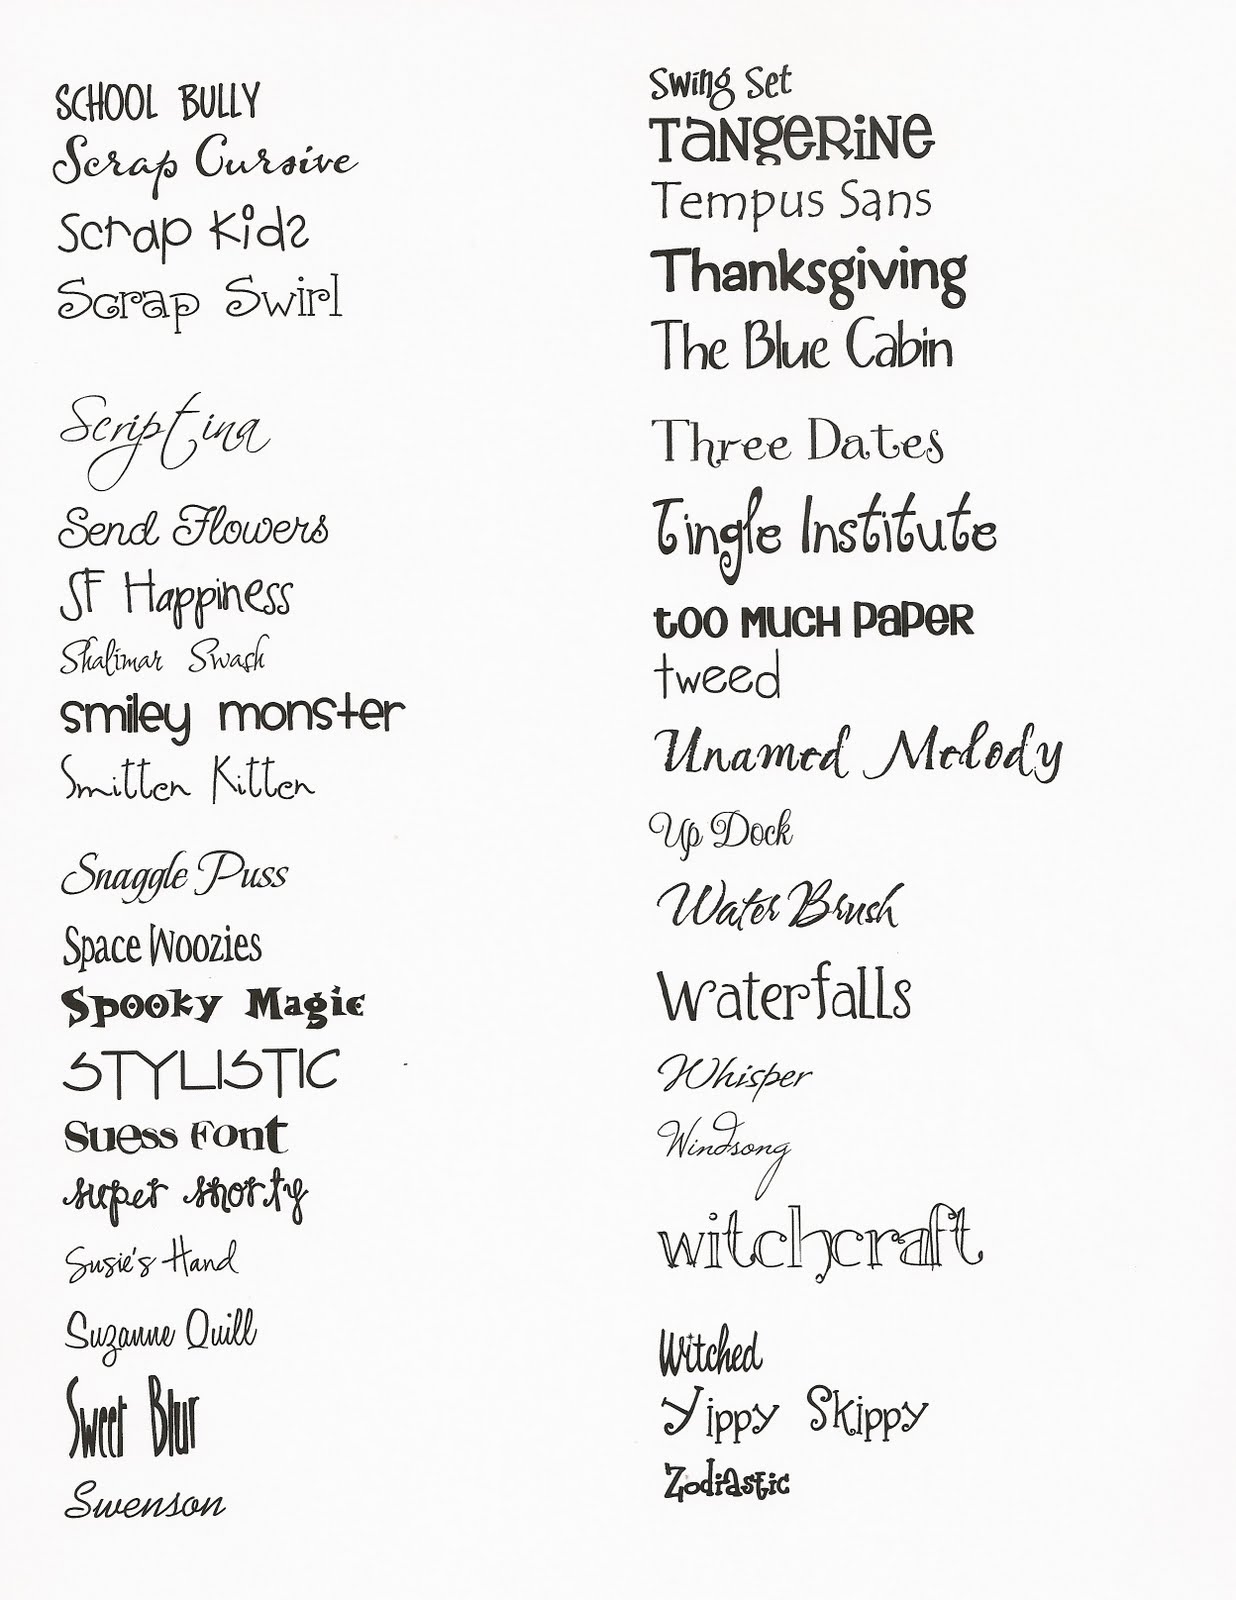 SCHOOL BULLY
Scrap Cursive
Scrap Kids
Scrap Swirl
Scriptina
Send Flowers
SF Happiness
Shalimar Swash
smiley monster
Smitten Kitten
Snaggle Puss
Space Woozies
Spooky Magic
STYLISTIC
Suess Font
super shorty
Susie's Hand
Suzanne Quill
Sweet Blur
Swenson
Swing Set
TaNgeRiNe
Tempus Sans
Thanksgiving
The Blue Cabin
Three Dates
Tingle Institute
too MUCH PaPeR
tweed
Unamed Melody
Up Dock
Water Brush
Waterfalls
Whisper
Windsong
witchcraft
Witched
Yippy Skippy
Zodiastic